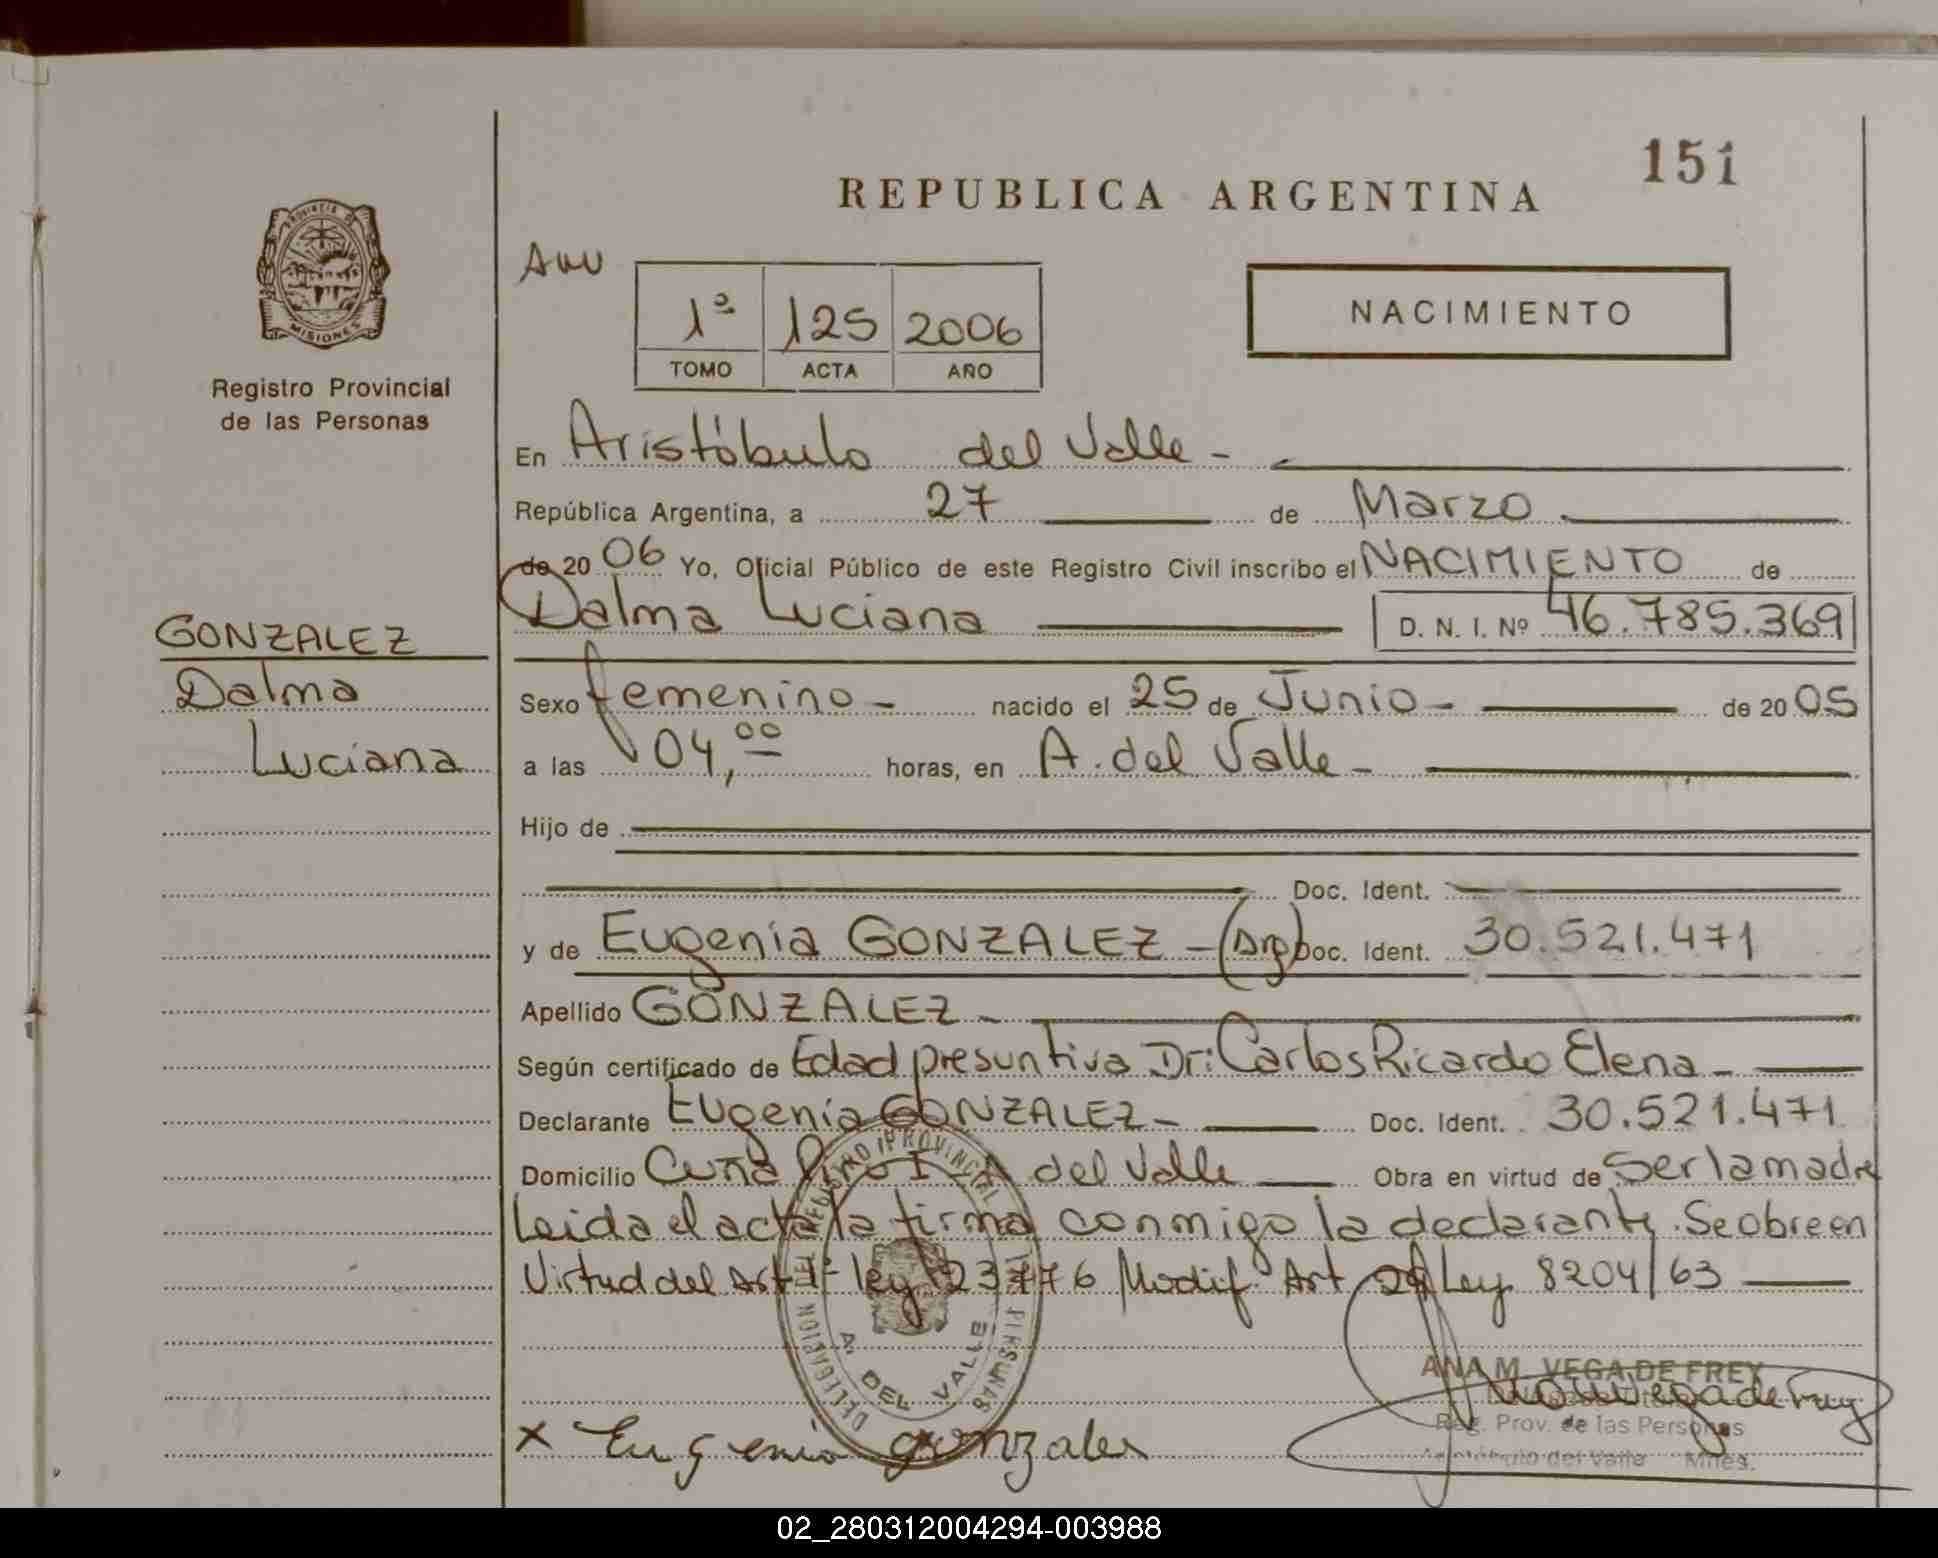 151
REPUBLICA ARGENTINA
PROVINCIA DE
MISIONES
Registro Provincial
de las Personas
1ª 125 2006
TOMO ACTA AÑO
NACIMIENTO
En Aristóbulo del Valle -
República Argentina, a 27 de Marzo
de 20 06 Yo, Oficial Público de este Registro Civil inscribo el NACIMIENTO de
Dalma Luciana D. N. I. Nº 46.785.369
GONZALEZ
Dalma
Luciana
Sexo femenino - nacido el 25 de Junio - de 20 05
a las 04,00 horas, en A. del Valle -
Hijo de
Doc. Ident.
y de Eugenia GONZALEZ - (Arg) Doc. Ident. 30.521.471
Apellido GONZALEZ -
Según certificado de Edad presuntiva Dr: Carlos Ricardo Elena -
Declarante Eugenia GONZALEZ - Doc. Ident. 30.521.471
Domicilio Cuña Pirú I A del Valle Obra en virtud de Ser la madre
Leida el acta la firma conmigo la declarante. Se obre en
Virtud del Art 1º ley 23776 Modif. Art 29 Ley 8204/63
DELEGACION DEL REGISTRO PROVINCIAL PERSONAS
A. DEL VALLE
ANA M. VEGA DE FREY
Reg. Prov. de las Personas
Aristóbulo del Valle Mnes.
x Eugenia gonzales
02_280312004294-003988